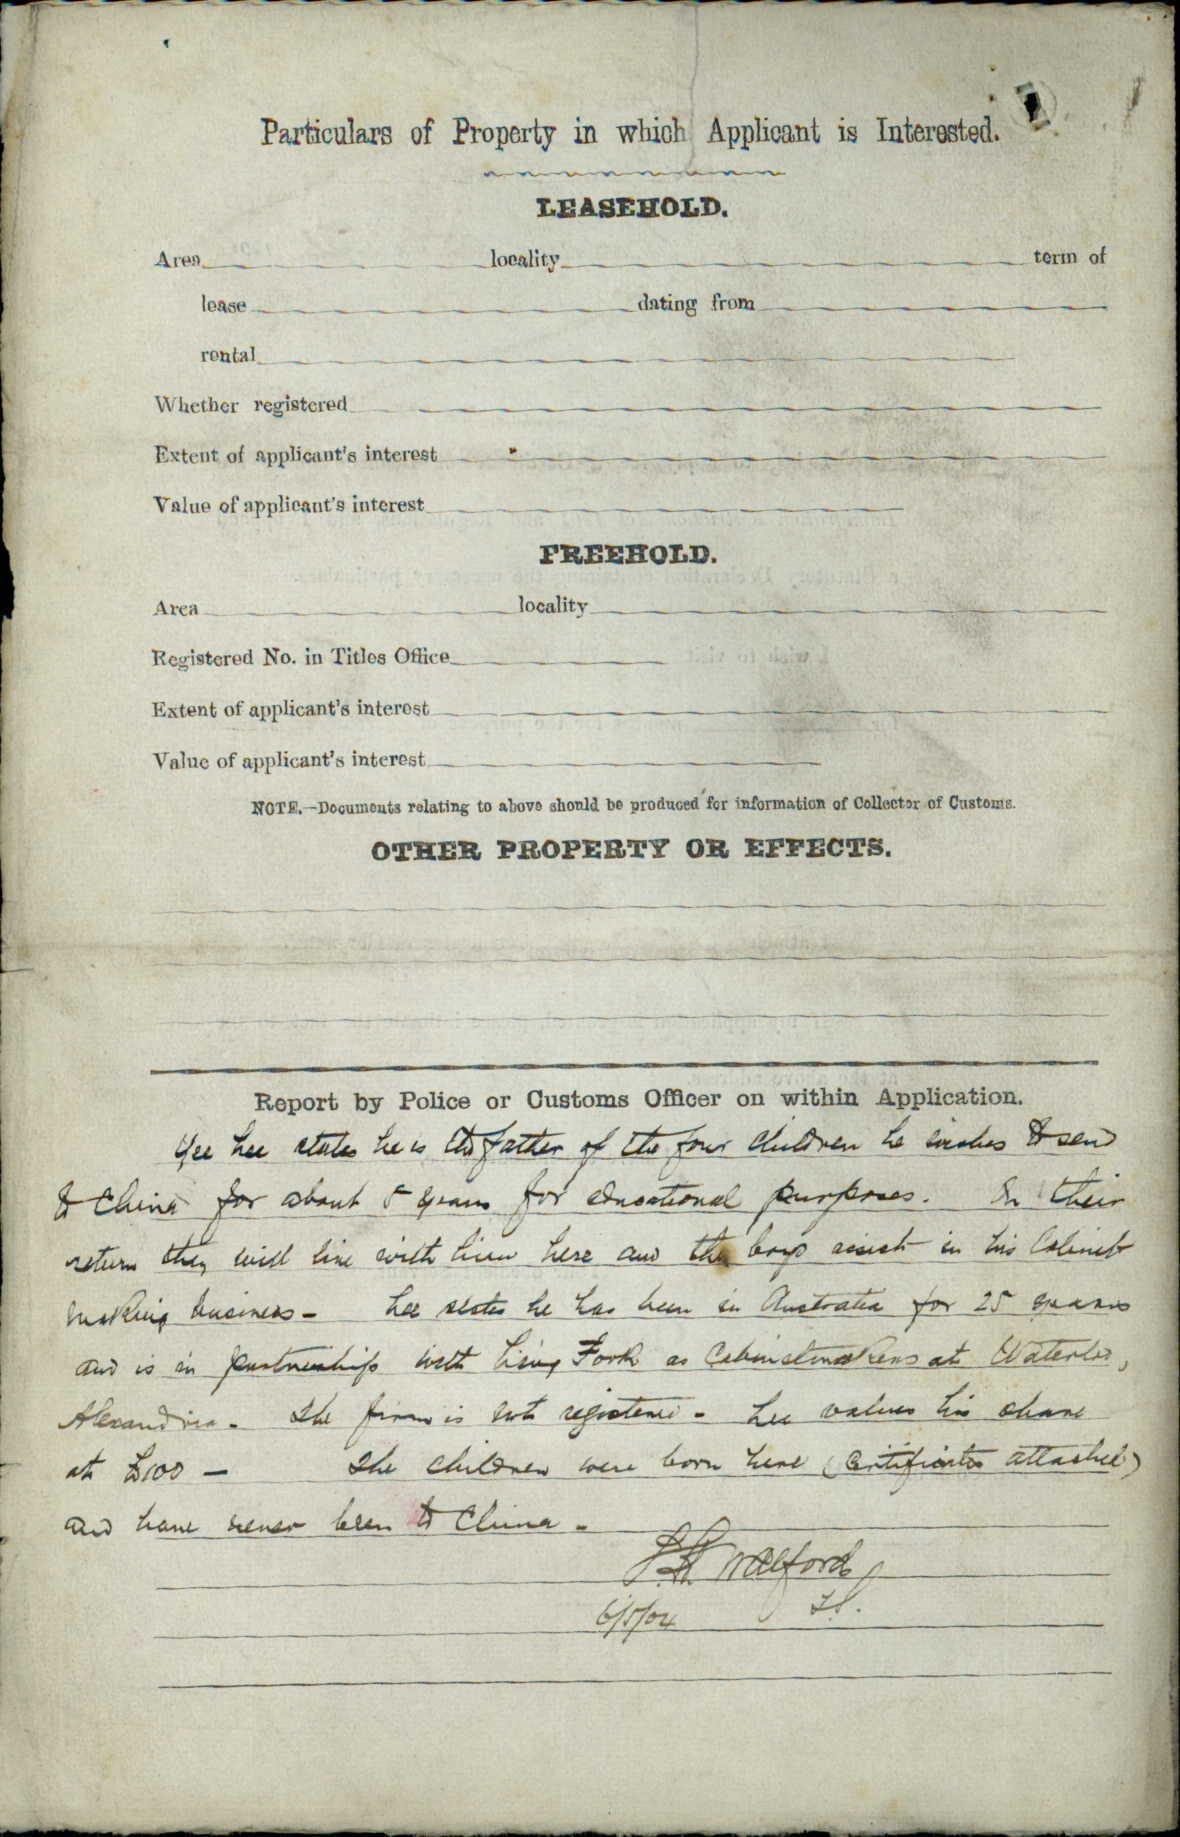 Particulars of Property in which Applicant is Interested.
LEASEHOLD.
Area locality term of
lease dating from
rental
Whether registered
Extent of applicant's interest
Value of applicant's interest
FREEHOLD.
Area locality
Registered No. in Titles Office
Extent of applicant's interest
Value of applicant's interest
NOTE.—Documents relating to above should be produced for information of Collector of Customs.
OTHER PROPERTY OR EFFECTS.
Report by Police or Customs Officer on within Application.
Yee Lee states he is the father of the four children he wishes to send
to China for about 5 years for educational purposes. On their
return they will live with him here and the boys assist in his Cabinet
making business - Lee states he has been in Australia for 25 years
and is in partnership with Fook as Cabinetmakers at Waterloo,
Alexandria - The firm is not registered - Lee values his share
at £100 - The children were born here (Certificates attached)
and have never been to China -
Walford
6/5/04